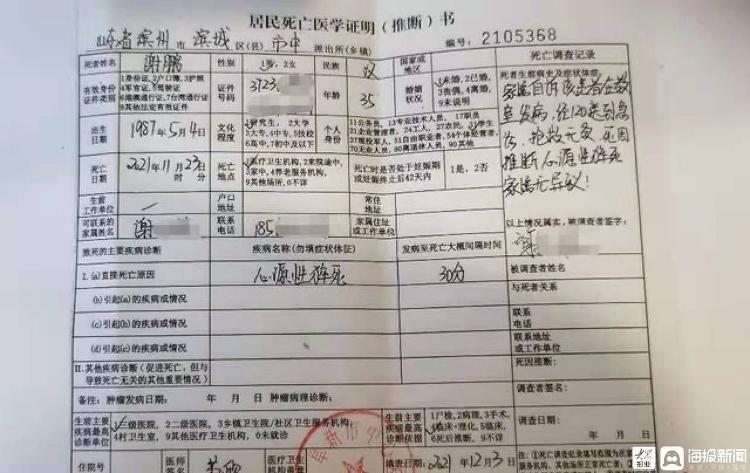 居民死亡医学证明（推断）书
山东省滨州市滨城区(县)市中派出所(乡镇) 编号：2105368
死者姓名 谢鹏 性别 1男，2女 民族 汉 国家或地区 死亡调查记录
有效身份证件类别 1身份证，2户口簿，3护照 4军官证，5驾驶证 6港澳通行证，7台湾通行证 9其他法定有效证件 证件号码 3723 年龄 35 婚姻状况 1未婚，2已婚，3丧偶，4离婚，9未说明
死者生前病史及症状体征：
家属自诉该患者在教室发病，经120来到急诊，抢救无效，死因推断心源性猝死 家属无异议！
出生日期 1987年5月4日 文化程度 1研究生，2大学 3大专，4中专，5技校 6高中，7初中及以下 个人身份 11公务员，13专业技术人员，17职员 21企业管理者，24工人，27农民，31学生 37现役军人，51自由职业者，54个体经营者，70无业人员，80离退休人员，90其他
死亡日期 2021年11月23日 时 分 死亡地点 1医疗卫生机构，2来院途中，3家中，4养老服务机构，9其他场所，0不详 死亡时是否处于妊娠期或妊娠终止后42天内 1是，2否
生前工作单位 户口地址 常住地址
可联系的家属姓名 谢 联系电话 185 家属住址或工作单位
以上情况属实，被调查者签字：
致死的主要疾病诊断 疾病名称(勿填症状体征) 发病至死亡大概间隔时间
被调查者姓名
I.(a)直接死亡原因 心源性猝死 30分
与死者关系
(b)引起(a)的疾病或情况
联系电话
(c)引起(b)的疾病或情况
联系地址或工作单位
(d)引起(c)的疾病或情况
死因推断：
II.其他疾病诊断(促进死亡，但与导致死亡无关的其他重要情况)
调查者签名：
备注：肿瘤发病日期： 年 月 日 肿瘤病理诊断：
生前主要疾病最高诊断单位 1三级医院，2二级医院，3乡镇卫生院/社区卫生服务机构，4村卫生室，9其他医疗卫生机构，0未就诊 生前主要疾病最高诊断依据 1尸检，2病理，3手术，4临床+理化，5临床，6死后推断，9不详
调查日期： 年 月 日
住院号 医师签名 医疗卫生机构盖章 填表日期 2021年12月3日
注：①死亡调查纪录填写范围
大众报业 海报新闻